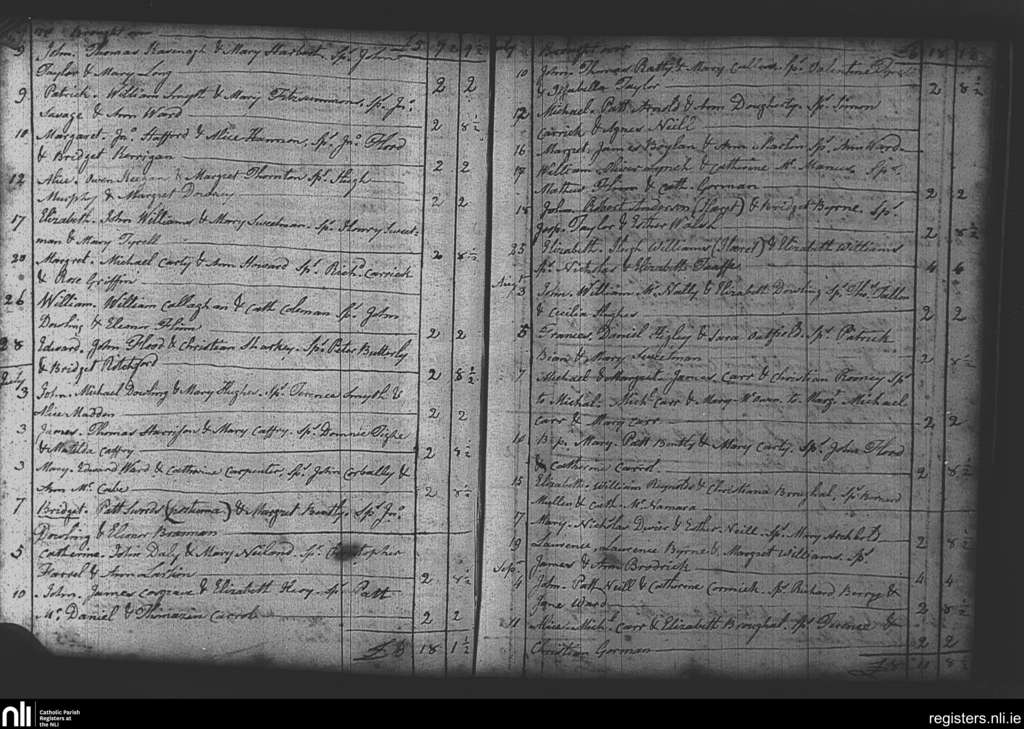 Brought over £5 9 2 9½
9 John. Thomas Kavenagh & Mary Harbert Sps John
Taylor & Mary Long 2 2
9 Patrick. William Smyth & Mary Fitzsimmons. Sps Jno
Savage & Ann Ward 2 8½
10 Margaret. Jno Stafford & Alice Harmon. Sps Jno Flood
& Bridget Kerrigan 2 2
12 Alice. Owen Keenan & Margret Thornton Sps Hugh
Murphy & Margret 2 2
17 Elizabeth. John Williams & Mary Sweetman. Sps Henry Sweet-
man & Mary Tyrell 2 8½
20 Margret. Michael Carty & Ann Howard Sps Richd Carrick
& Rose Griffin
26 William. William Callaghan & Cath Coleman Sps John
Dowling & Eleanor 2 2
28 Edward. John Flood & Christian Sharkey. Sps Peter Butterly
& Bridget Rotchford 2 8½
July
3 John. Michael Dowling & Mary Hughes. Sps Terence Smyth &
Alice Madden 2 2
3 James. Thomas Harrison & Mary Caffry. Sps Dominic Tighe
& Matilda Caffry 2 8½
3 Mary. Edward Ward & Catherine Carpenter, Sps John Corballey &
Ann Mc Cabe 2 8½
7 Bridget. Patt Swords & Margret Bently. Sps Jno
Dowling & Elenor Brannan
5 Catherine. John Daly & Mary Nieland. Sps Christopher
Farrel & Ann Larkin 2 8½
10 John. James Cosgrave & Elizabeth Sps Patt
Mc Daniel & Carrol 2 2
£8 18 1½
July Brought over £8 18 1½
10 John. Thomas Ratty & Mary Sps Valentine
& Isabella Taylor 2 8½
12 Michael. Patt Arnold & Ann Dougherty Sps Simon
Carrick & Agnes Neill
16 Margret. James Boylan & Ann Sps Ann Ward
17 William & Catherine Mc Manus Sps
Mathew & Cath. Gorman 2 2
18 John. Robert Anderson & Bridget Byrne. Sps
Josp. Taylor & Esther Walsh 2 8½
25 Elizabeth. Hugh Williams & Elizabeth Williams
Sps Nicholas & Elizabeth Taaffe 4 6
Augt
3 John. William Mc & Elizabeth Dowling Sps Thos Fallon
& Cecilia Hughes 2 2
5 Frances. Daniel Hegley & Sara Oatfield. Sps Patrick
& Mary Sweetman 2 8½
7 Michael & Margaret. James Carr & Christian Rooney Sps
to Michael. Michl Carr & Mary to Margt Michael
Carr & Mary Carr 2 2
10 Mary. Patt Bently & Mary Carty. Sps John Flood
& Catherine Carrol 2 8½
15 Elizabeth. William Reynolds & Christiana Broughal, Sps Bernard
Mullen & Cath. Mc Namara
17 Mary. Nicholas & Esther Neill. Sps Mary Archbold 2 8½
19 Lawrence. Lawrence Byrne & Margret Williams. Sps
James & Ann Brodrick 4 4
Sepr
4 John. Patt Neill & Catherine Cormick. Sps Richard Berry &
Jane Ward 2 8½
11 Alice. Michl Carr & Elizabeth Broughal, Sps Terence &
Christian Gorman 2 2
nli
Catholic Parish
Registers at
the NLI
registers.nli.ie